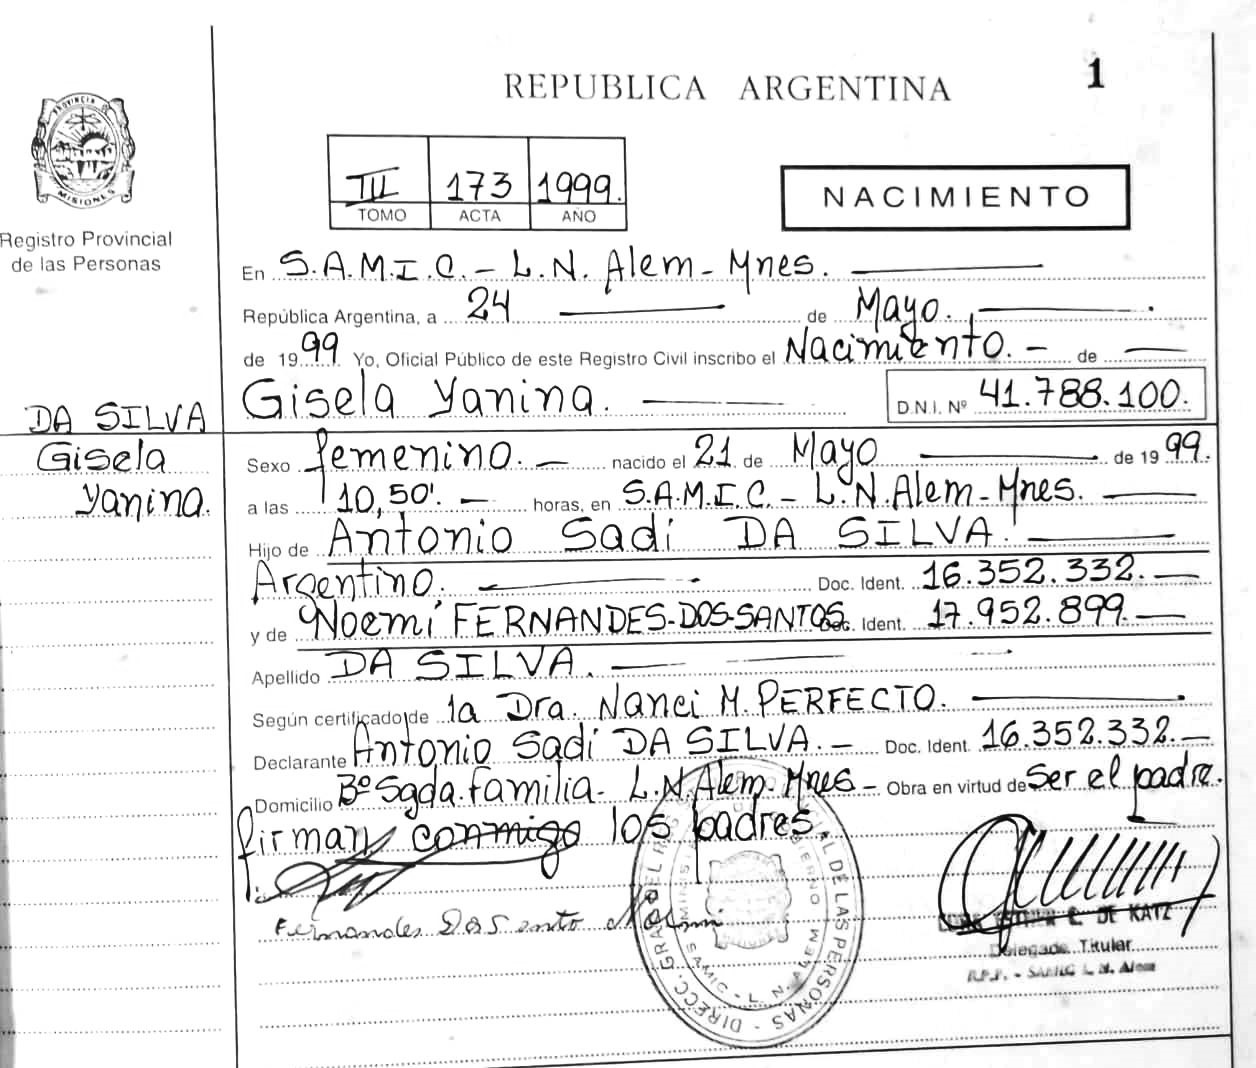 REPUBLICA ARGENTINA
1
PROVINCIA DE
MISIONES
Registro Provincial
de las Personas
III 173 1999.
TOMO ACTA AÑO
NACIMIENTO
En S.A.M.I.C. - L.N. Alem - Mnes.
República Argentina, a 24 de Mayo.
de 1999. Yo, Oficial Público de este Registro Civil inscribo el Nacimiento. - de
Gisela Yanina. D.N.I. Nº 41.788.100.
DA SILVA
Gisela
Yanina.
Sexo femenino. - nacido el 21 de Mayo de 1999.
a las 10,50'. - horas, en S.A.M.I.C. - L.N. Alem - Mnes.
Hijo de Antonio Sadi DA SILVA.
Argentino. Doc. Ident. 16.352.332. -
y de Noemi FERNANDES-DOS-SANTOS Doc. Ident. 17.952.899. -
Apellido DA SILVA.
Según certificado de la Dra. Nanci M. PERFECTO.
Declarante Antonio Sadi DA SILVA. - Doc. Ident. 16.352.332. -
Domicilio Bº Sgda. Familia - L.N. Alem - Mnes - Obra en virtud de Ser el padre.
firman conmigo los padres.
Fernandes Dos santo Noemi
E. DE KATZ
Delegada Titular
R.P.P. - SAMIC L. N. Alem
DIRECC. GRAL DEL REG. PROVINCIAL DE LAS PERSONAS -
SAMIC - L. N. ALEM